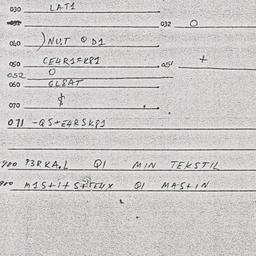 030 LAT1
032 O
040 )NUT Q D1
050 CE4R1FK81 051 +
052 O
060 GL8AT
070 $
071 -QS+E4RSK81
900 P3RKA,L Q1 MIN TEKSTIL
900 Q1 MAS+IN